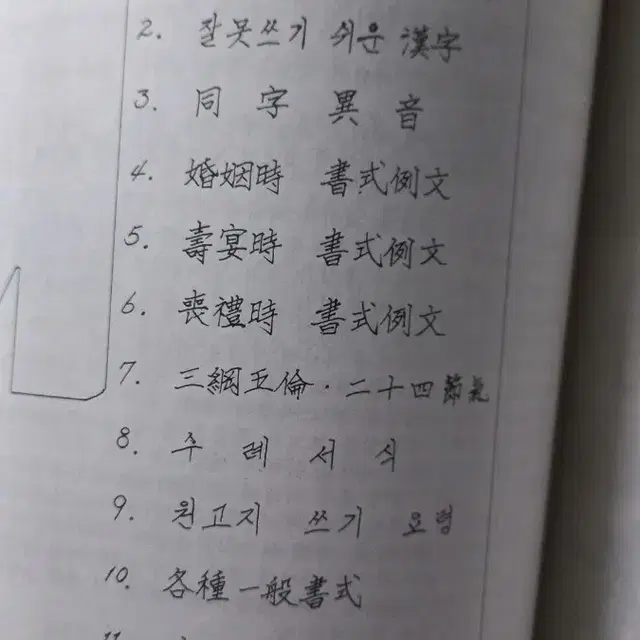 2. 잘못쓰기 쉬운 漢字
3. 同字異音
4. 婚姻時 書式例文
5. 壽宴時 書式例文
6. 喪禮時 書式例文
7. 三綱五倫·二十四節氣
8. 주례서식
9. 원고지 쓰기 요령
10. 各種一般書式